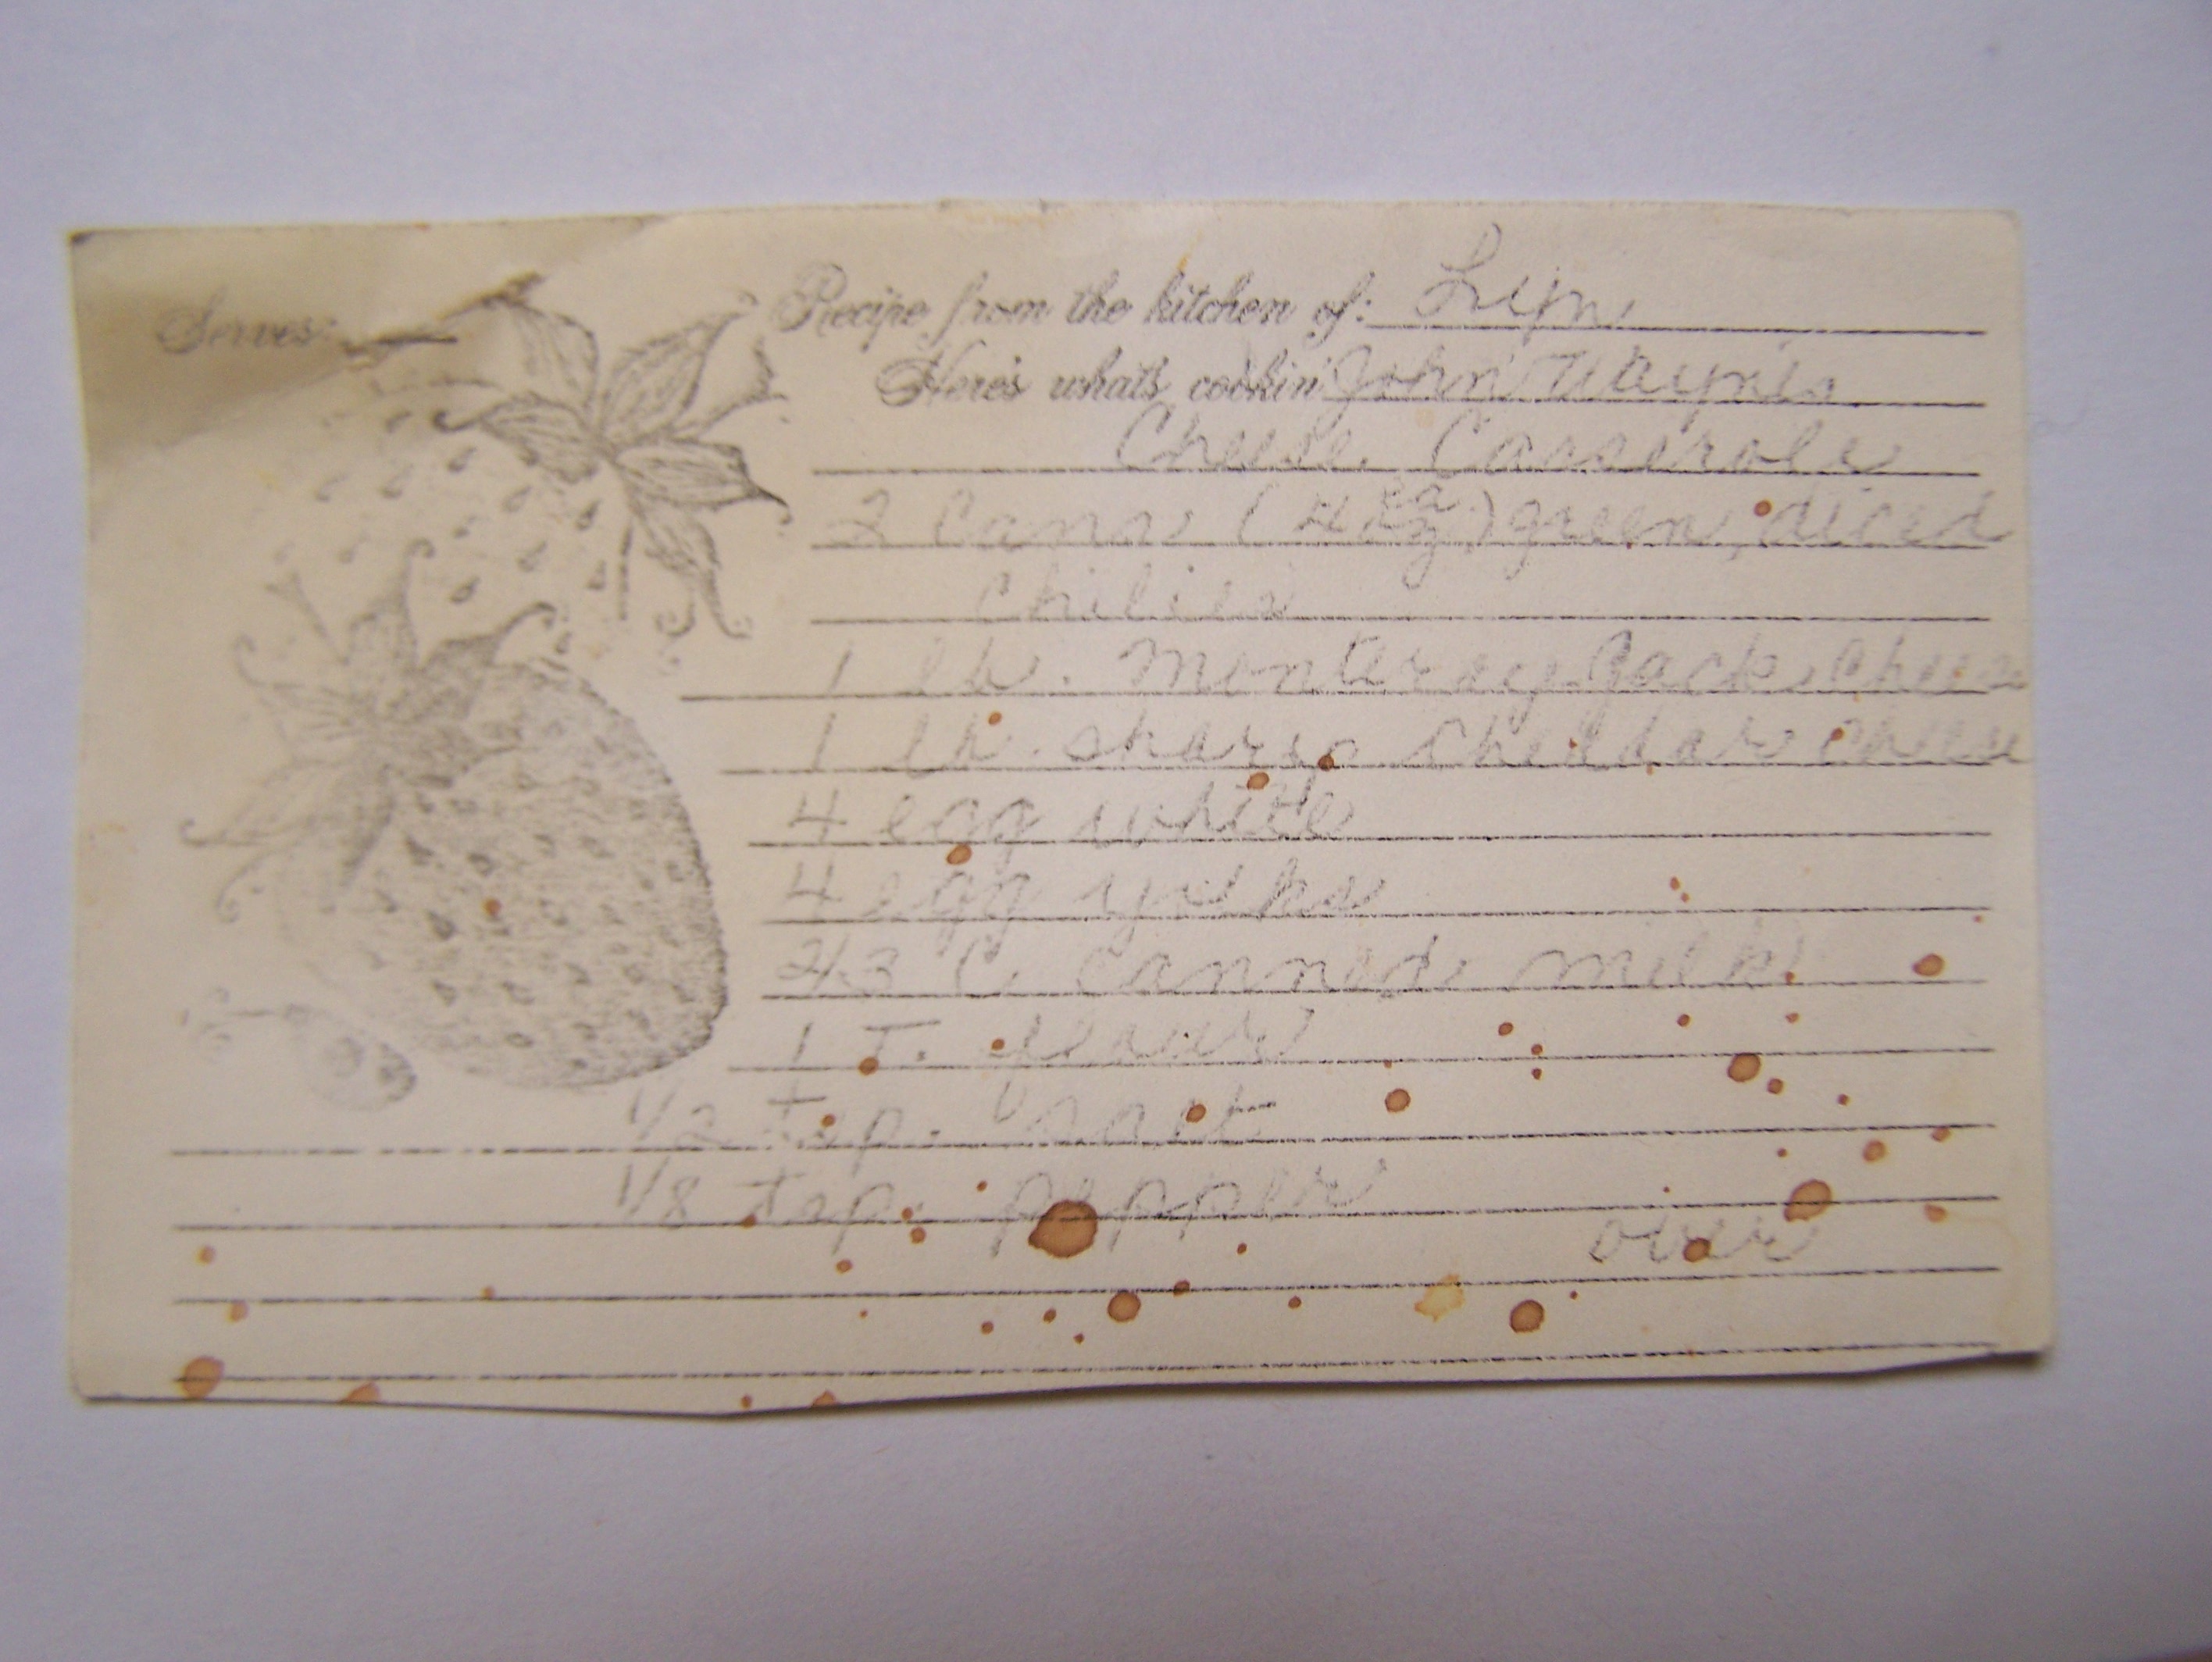 Serves:
Recipe from the kitchen of: Lyn
Here's what's cookin' John Wayne's
Cheese Casserole
2 cans (4 oz ea.) green, diced
chilies
1 lb. Monterey Jack cheese
1 lb. sharp cheddar cheese
4 egg white
4 egg yolks
2/3 C. canned milk
1 T. flour
1/2 tsp. salt
1/8 tsp. pepper
over